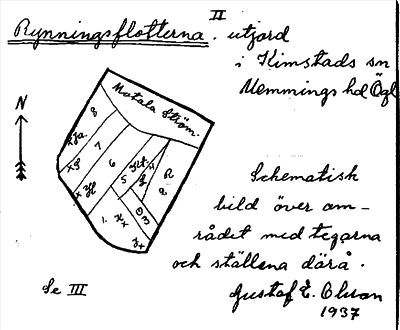 II
Rynningsflotterna. utjord
i Kimstads sn
Memmings hd Ögl
N
Motala Ström.
8
7
6
5
1.
R
a.
Schematisk
bild över om-
rådet med tegarna
och ställena därå.
Se III
Gustaf E. Olson
1937